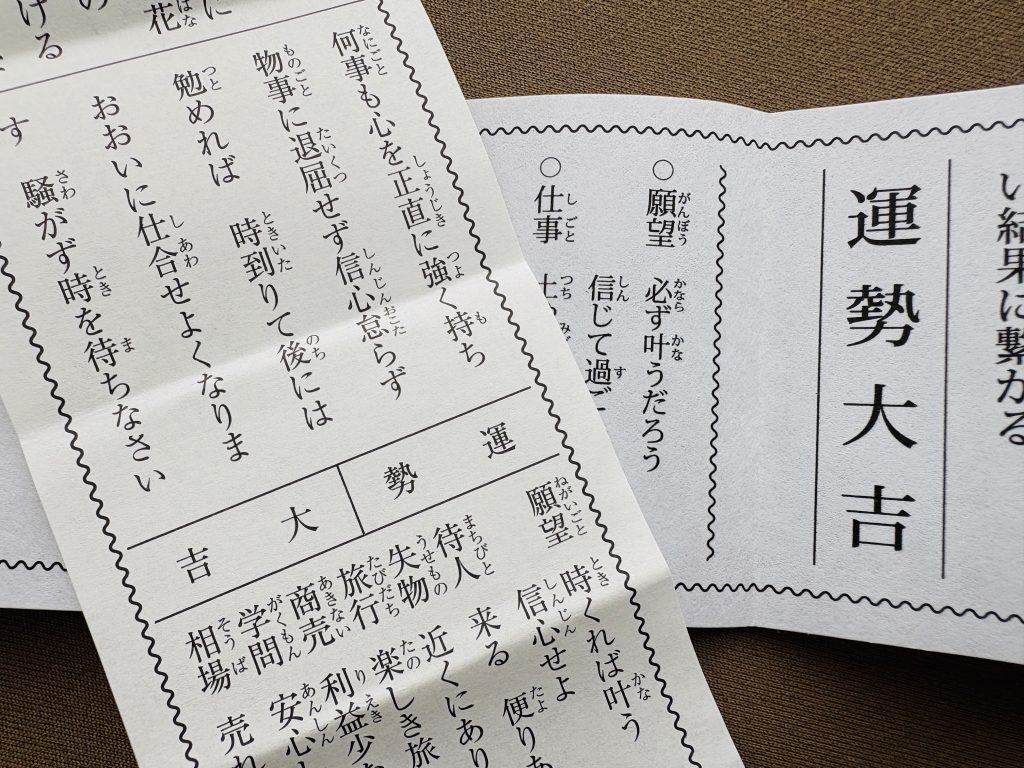 に
花
ける
の
何事も心を正直に強く持ち
物事に退屈せず信心怠らず
勉めれば　時到りて後には
おおいに仕合せよくなりま
す
騒がず時を待ちなさい
運勢
大吉
願望　時くれば叶う
信心せよ
待人　来る　便りあ
失物　近くにあり
旅行　楽しき旅
商売　利益少
学問　安心
相場　売れ
い結果に繋がる
運勢大吉
○願望　必ず叶うだろう
信じて過ご
○仕事